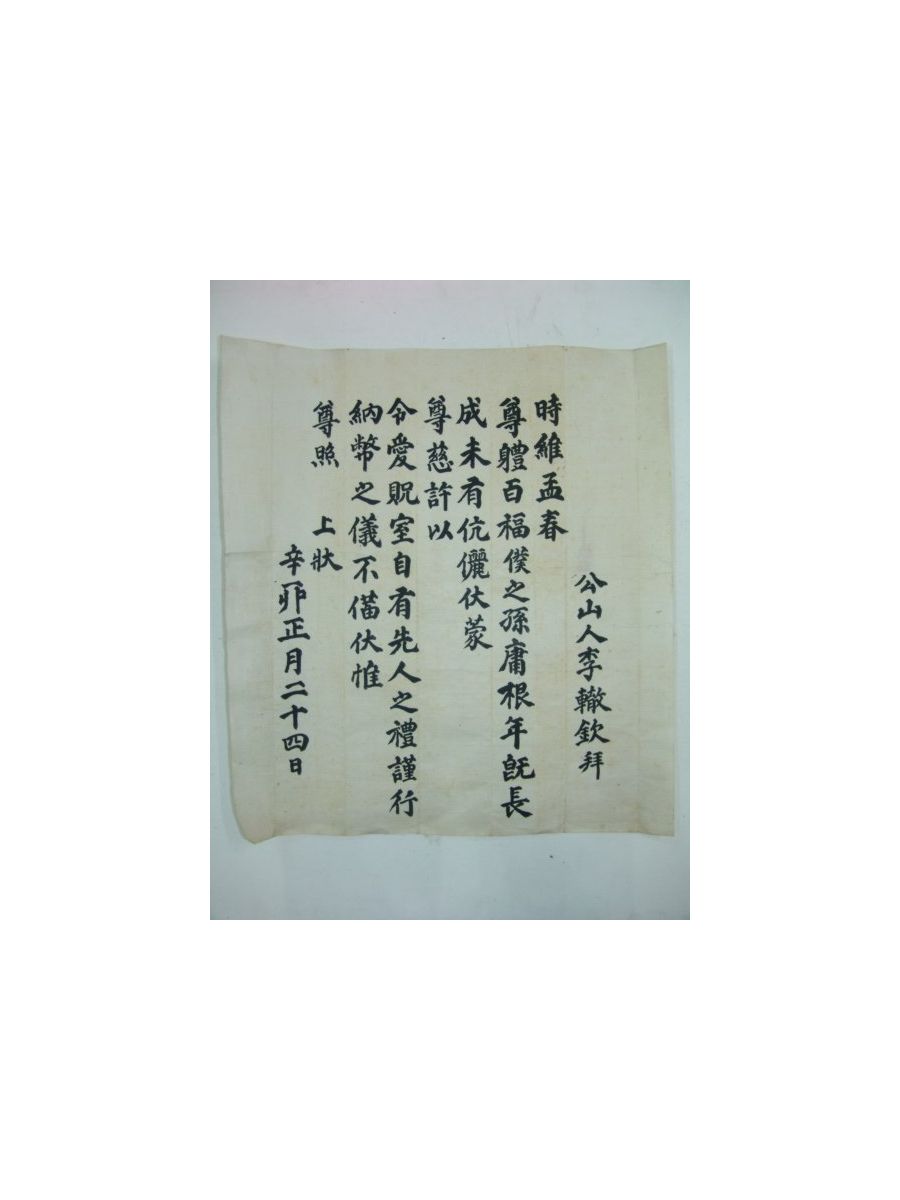 公山人李轍欽拜
時維孟春
尊體百福僕之孫庸根年旣長
成未有伉儷伏蒙
尊慈許以
令愛貺室自有先人之禮謹行
納幣之儀不僃伏惟
尊照 上狀
辛卯正月二十四日